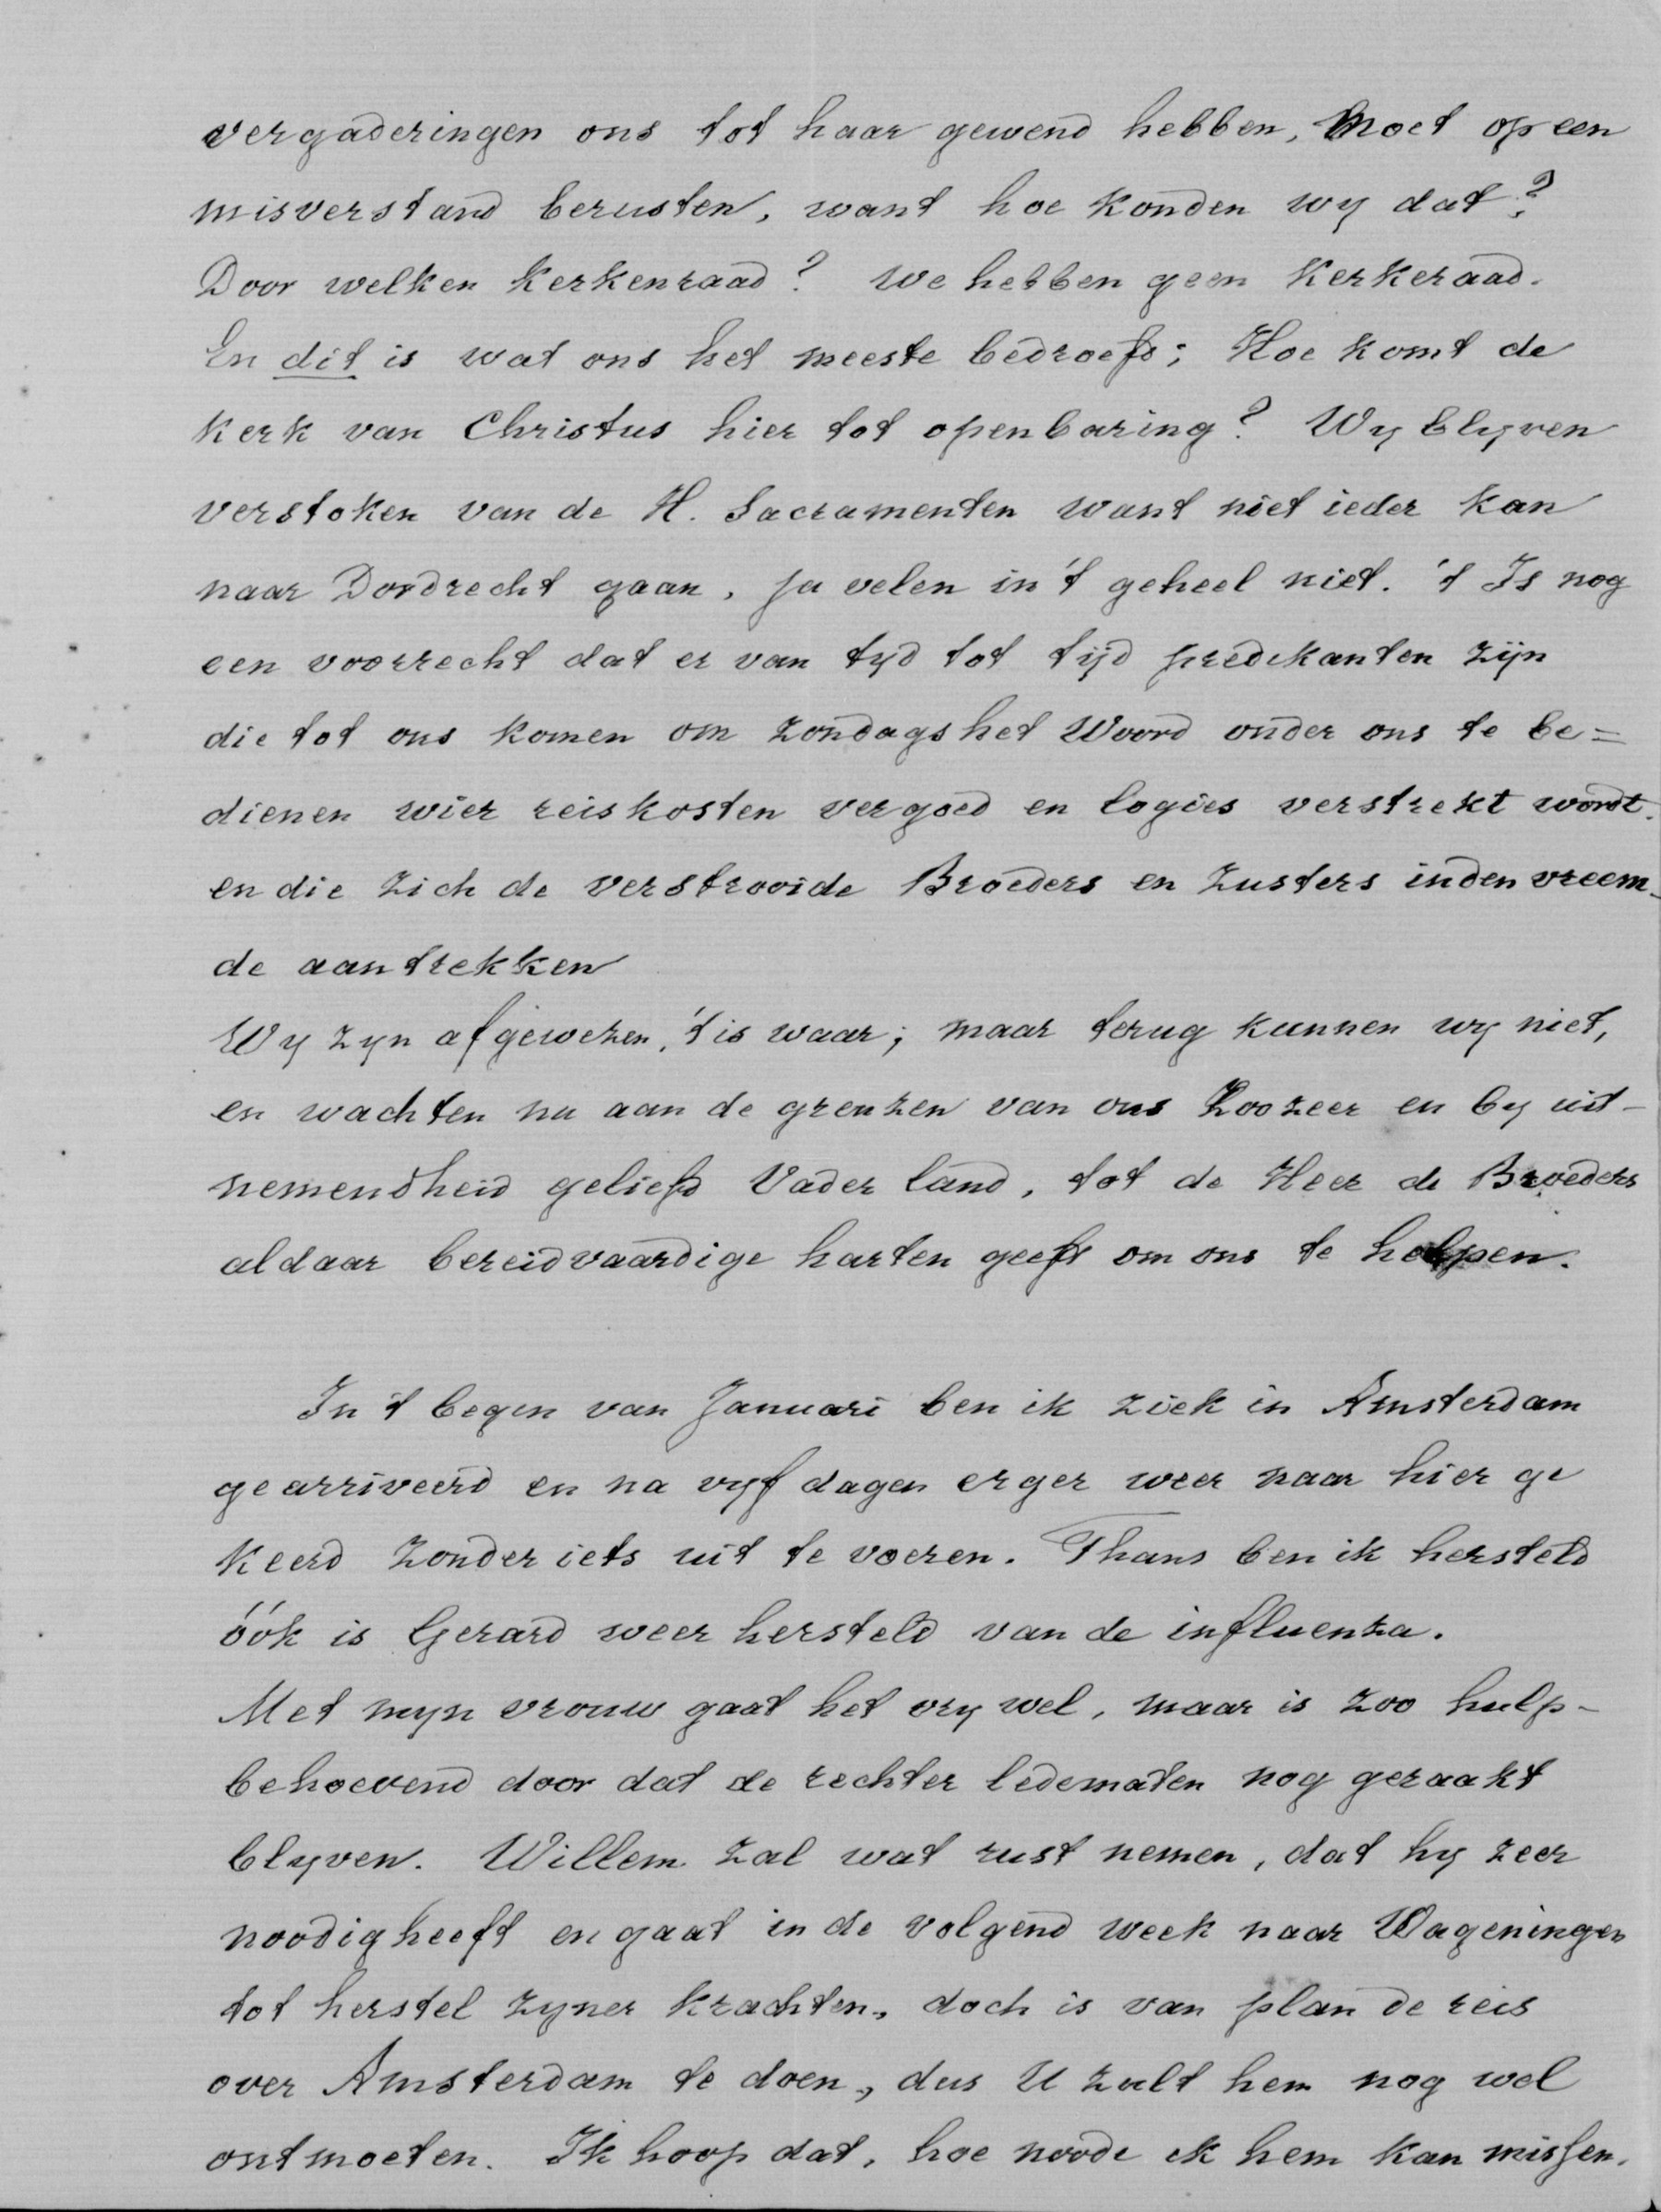 vergaderingen ons tot haar gewend hebben, moet op een
misverstand berusten, want hoe konden wy dat?
Door welken Kerkenraad? We hebben geen Kerkeraad.
En dit is wat ons het meeste bedroeft; Hoe komt de
Kerk van Christus hier tot openbaring? Wy blyven
verstoken van de H. Sacramenten want niet ieder kan
naar Dordrecht gaan, ja velen in 't geheel niet. 't Is nog
een voorrecht dat er van tyd tot tijd predikanten zijn
die tot ons komen om Zondags het Woord onder ons te be=
dienen wier reiskosten vergoed en logies verstrekt wordt.
en die zich de verstrooide Broeders en Zusters in den vreem-
de aantrekken
Wy zyn afgeweken, 't is waar; maar terug kunnen wy niet,
en wachten nu aan de grenzen van ons Zoozeer en by uit-
nemendheid geliefd Vaderland, tot de Heer de Broeders
aldaar bereidvaardige harten geeft om ons te helpen.
In 't begin van Januari ben ik ziek in Amsterdam
gearriveerd en na vyf dagen erger weer naar hier ge
keerd zonder iets uit te voeren. Thans ben ik hersteld
óók is Gerard weer hersteld van de influenza.
Met myn vrouw gaat het vry wel, maar is zoo hulp-
behoevend door dat de rechter ledematen nog geraakt
blyven. Willem zal wat rust nemen, dat hy zeer
noodig heeft en gaat in de volgend week naar Wageningen
tot herstel zyner krachten, doch is van plan de reis
over Amsterdam te doen, dus U zult hem nog wel
ontmoeten. Ik hoop dat, hoe noode ik hem kan missen,